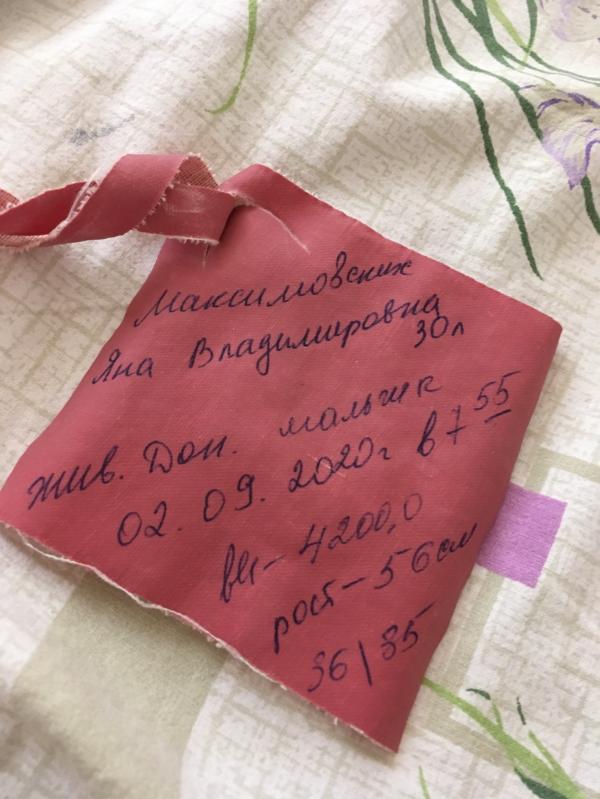 Максимовских
Яна Владимировна
30л
жив. Дон. мальчик
02. 09. 2020г в 7 55
вес - 4200,0
рост - 56 см
36 / 35